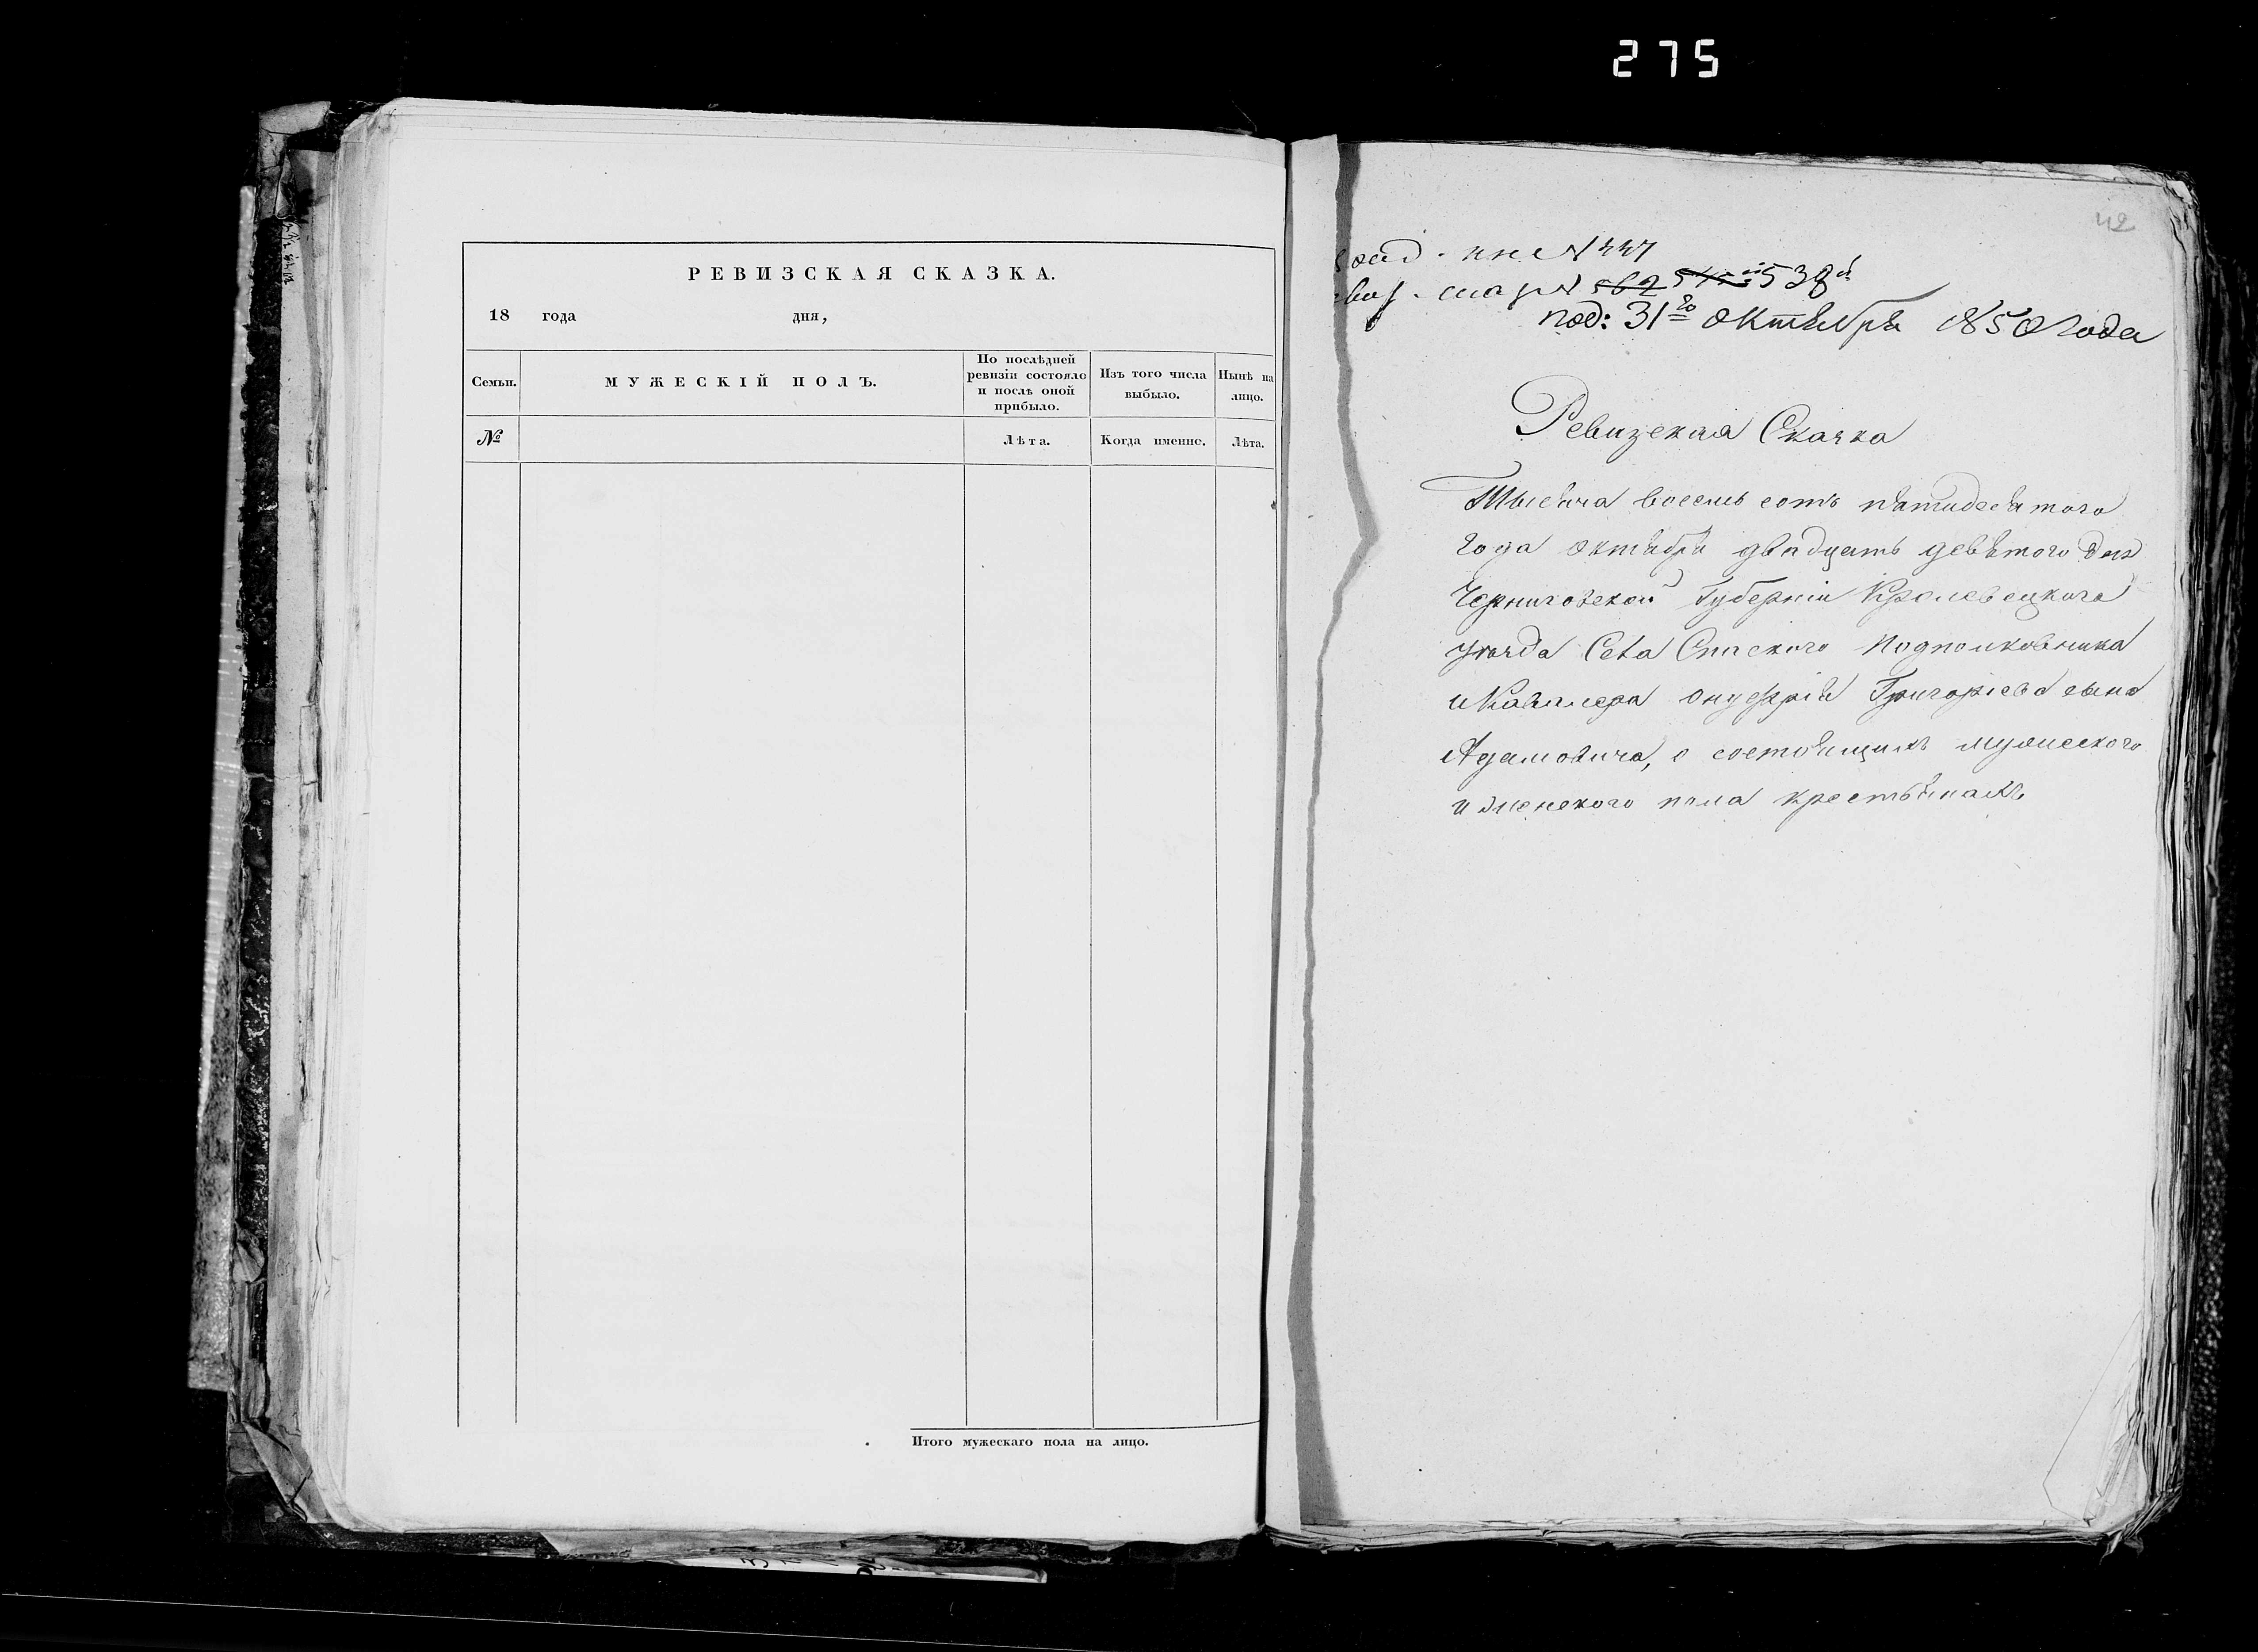 275
РЕВИЗСКАЯ СКАЗКА.
18 года дня,
Семьи.
МУЖЕСКІЙ ПОЛЪ.
По послѣдней
ревизіи состояло
и послѣ оной
прибыло.
Изъ того числа
выбыло.
Нынѣ на
лицо.
№
Лѣта.
Когда именно.
Лѣта.
Итого мужескаго пола на лицо.
42
№ 447
№ 562 538й
под: 31го Октября 1850 года
Ревизская Сказка
Тысяча восемь сотъ пятидесятого
года октября двадцать девятого дня
Черниговской Губерніи Кролевецкого
уезда Села Спаского Подполковника
и Кавалера Онуфрія Григорьева сына
Адамовича, о состоящихъ мужеского
и женского пола крестьянахъ